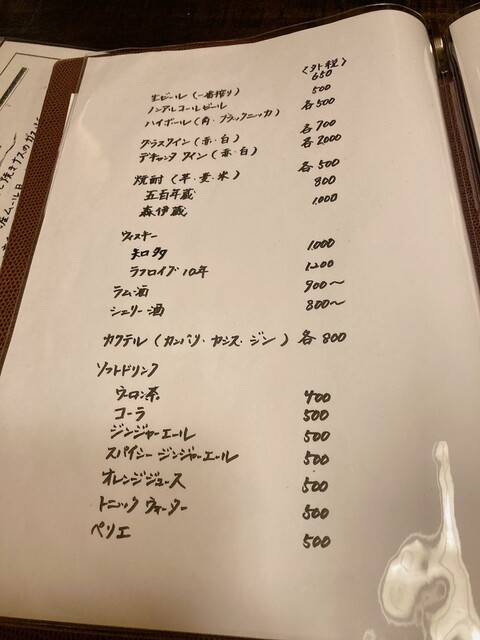 (外税)
生ビール (一番搾り) 650
ノンアルコールビール 500
ハイボール (角・ブラックニッカ) 各500
グラスワイン (赤・白) 各700
デキャンタ ワイン (赤・白) 各2000
焼酎 (芋・麦・米) 各500
五百年蔵 800
森伊蔵 1,000
ウィスキー
知多 1,000
ラフロイグ 10年 1200
ラム酒 900〜
シェリー酒 800〜
カクテル (カンパリ・カシス・ジン) 各 800
ソフトドリンク
ウーロン茶 400
コーラ 500
ジンジャーエール 500
スパイシー ジンジャーエール 500
オレンジジュース 500
トニック ウォーター 500
ペリエ 500